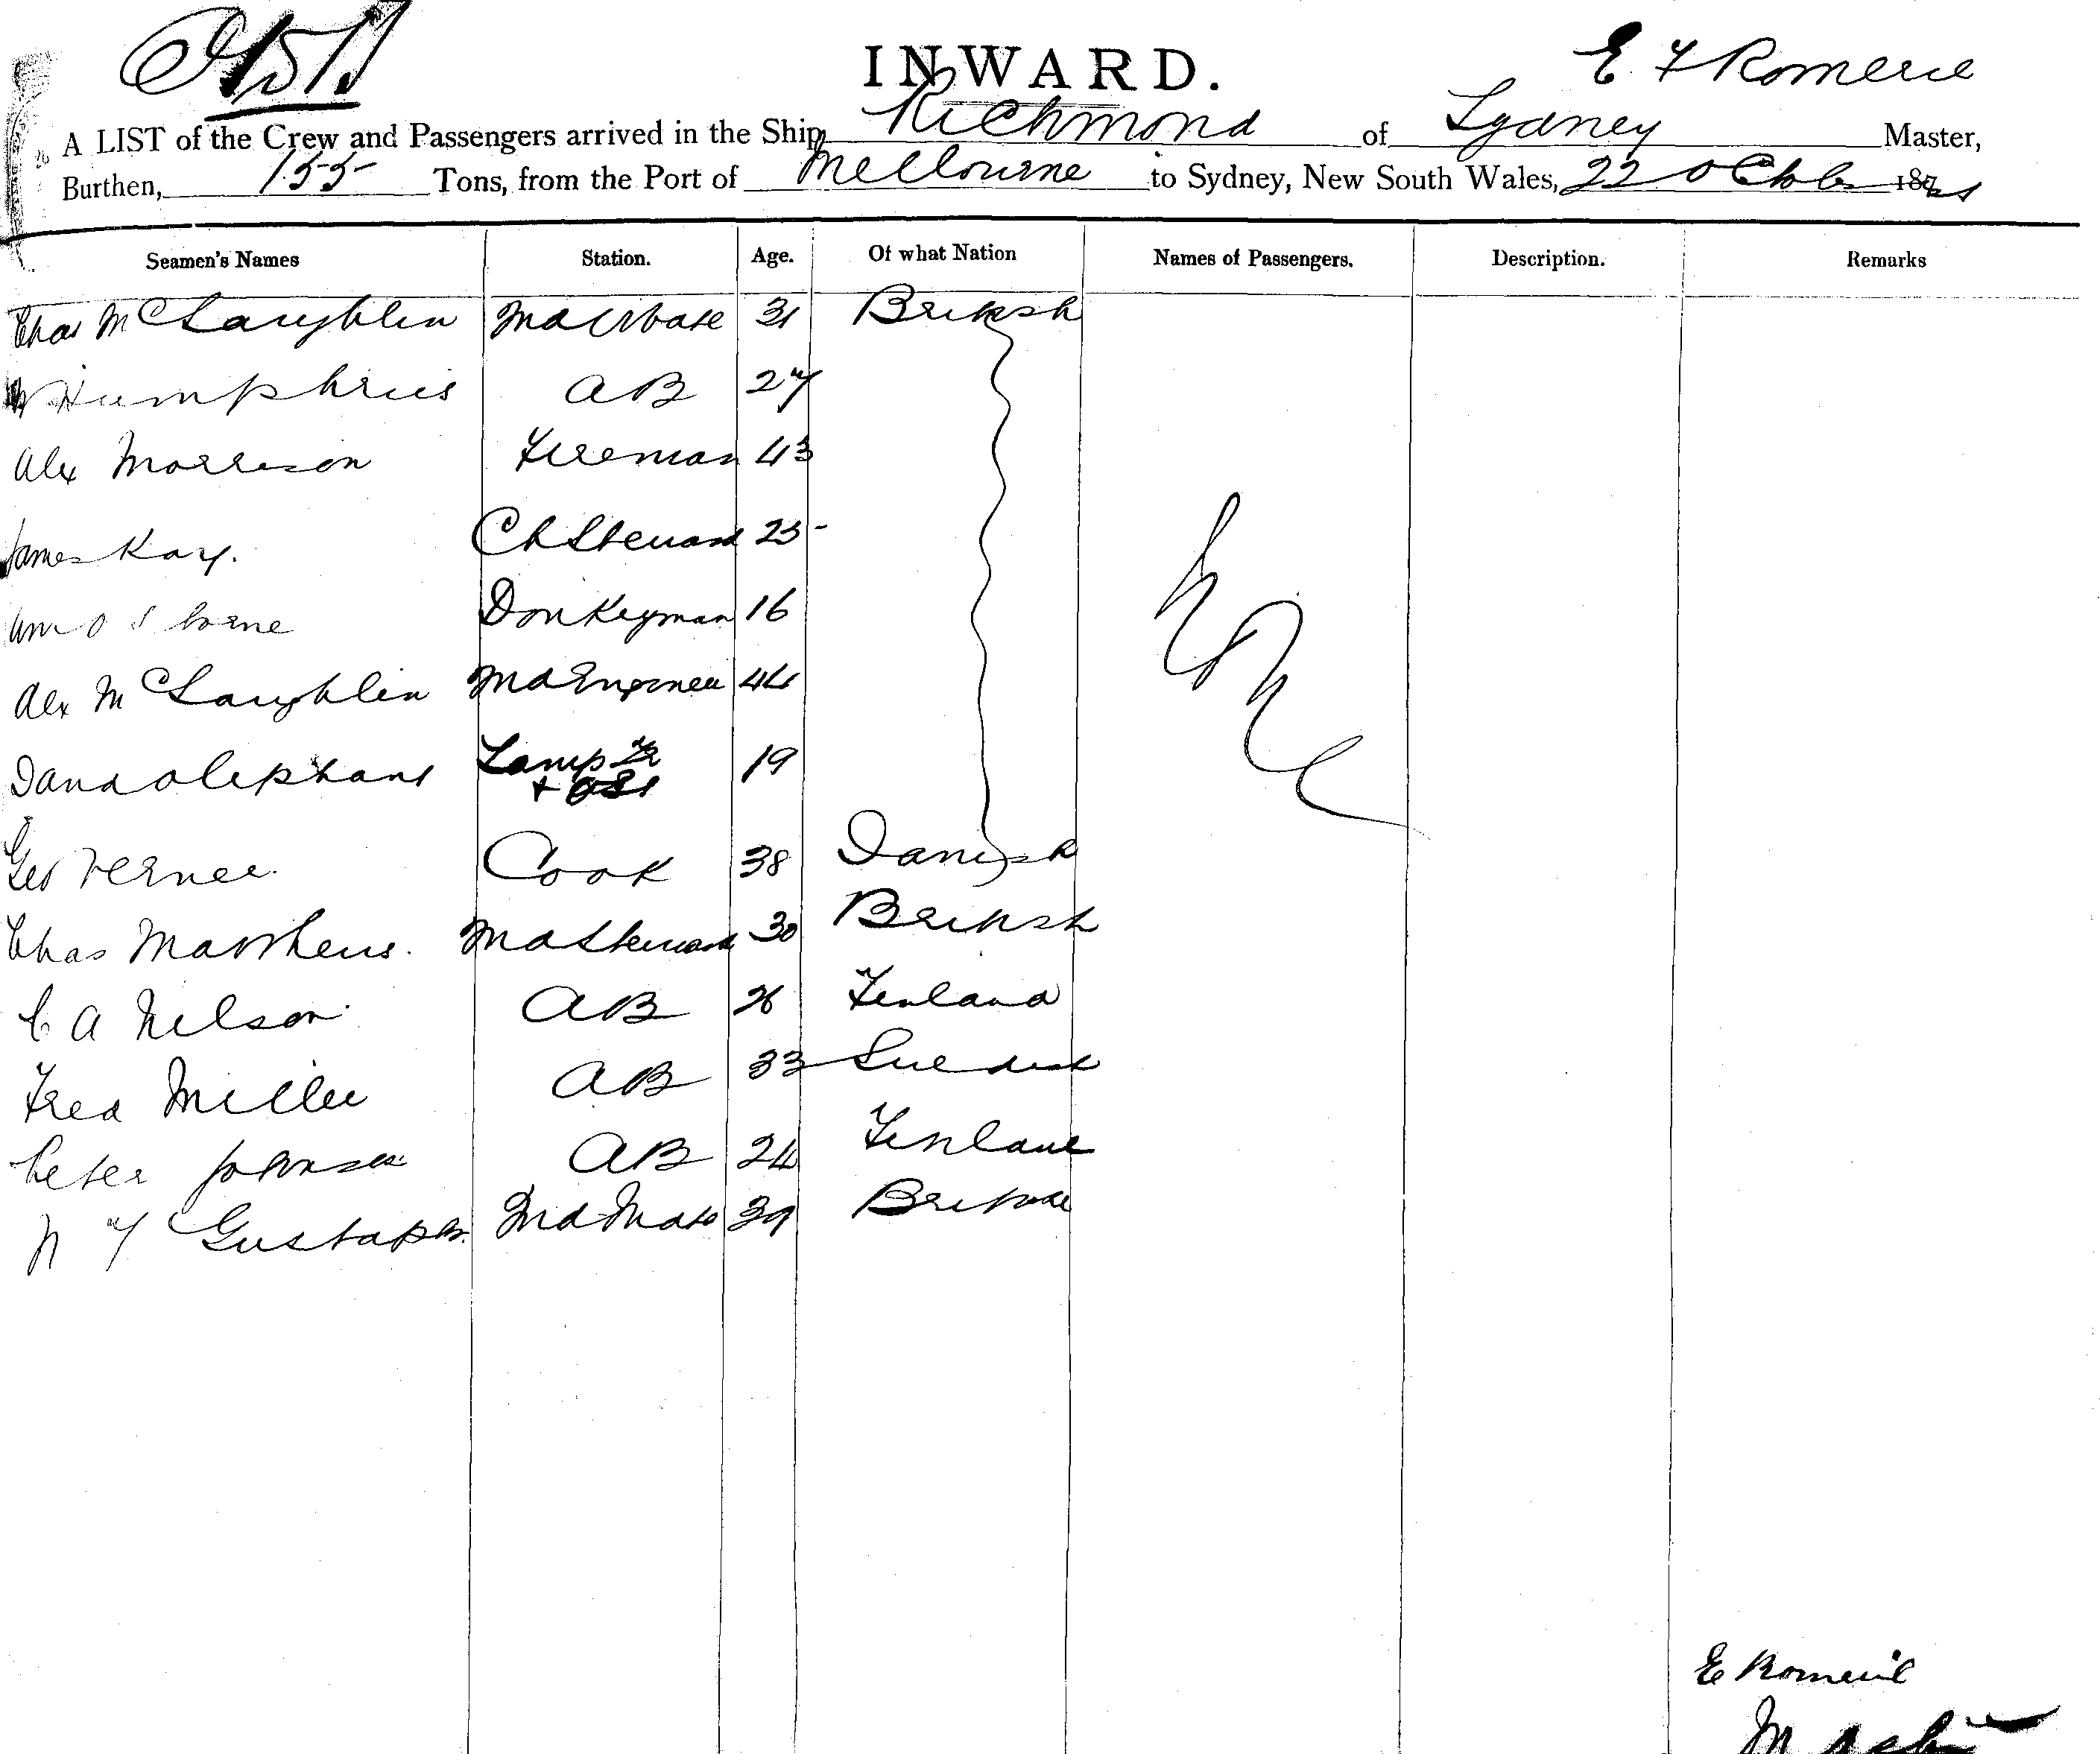 INWARD.
E F Romeril
A LIST of the Crew and Passengers arrived in the Ship Richmond of Sydney Master,
Burthen, 155 Tons, from the Port of Melbourne to Sydney, New South Wales, 22 Octbr 187
Seamen's Names Station. Age. Of what Nation Names of Passengers. Description. Remarks
Chas McLaughlin 31 British
Humphries AB 27
Alex Morrison Fireman 43
James Kay. Ch Steward 25
Wm Osborne Donkeyman 16
Alex McLaughlin 2nd Engineer 44
David Olephant Lamp Tr 19
+ OS
Geo Verner. Cook 38 Danish
Chas Matthews. 2nd Steward 30 British
C A Nelson AB 26 Finland
Fred Miller AB 33 Swedish
Peter Johnson AB 24 Finland
N F Gustaph 2nd Mate 39 British
Nil
E Romeril